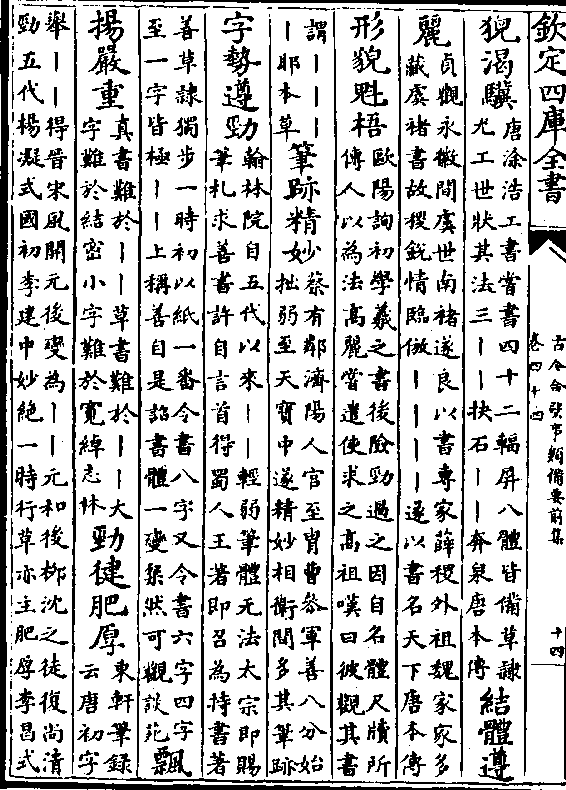 欽定四庫全書
古今合璧事類備要前集
卷四十四
十四
猊渴驥
唐涂浩工書嘗書四十二幅屏八體皆備草隷
尤工世狀其法三丨丨抉石丨丨奔泉唐本傳
結體遵
麗
貞觀永徽間虞世南褚遂良以書專家薛稷外祖魏家家多
藏虞褚書故稷鋭情臨倣丨丨丨丨遂以書名天下唐本傳
形貌魁梧
歐陽詢初學羲之書後險勁過之因自名體尺牘所
傳人以為法高麗嘗遣使求之高祖嘆曰彼觀其書
謂丨丨丨丨
丨耶本草
筆跡精妙
蔡有鄰濟陽人官至胄曹叅軍善八分始
拙弱至天寶中遂精妙相衛間多其筆跡
字勢遵勁
翰林院自五代以來丨丨輕弱筆體无法太宗即賜
筆札求善書許自言首得蜀人王著即召為持書著
善草隷獨步一時初以紙一畨令書八字又令書六字四字
至一字皆極丨丨上稱善自是詔書體一變粲然可觀談苑
飄
揚嚴重
真書難於丨丨草書難於丨丨大
字難於結密小字難於寛綽志林
勁健肥厚
東軒筆録
云唐初字
舉丨丨得晉宋風開元後變為丨丨元和後柳沈之徒復尚清
勁五代楊凝式國初李建中妙絶一時行草亦主肥厚李昌式